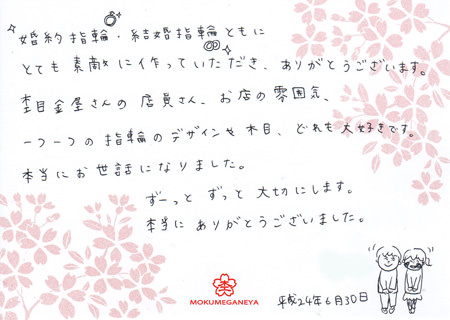 婚約指輪・結婚指輪ともに
とても素敵に作っていただき、ありがとうございます。
杢目金屋さんの店員さん、お店の雰囲気、
一つ一つの指輪のデザインや木目、どれも大好きです。
本当にお世話になりました。
ずーっとずっと大切にします。
本当にありがとうございました。
杢
MOKUMEGANEYA
平成24年6月30日